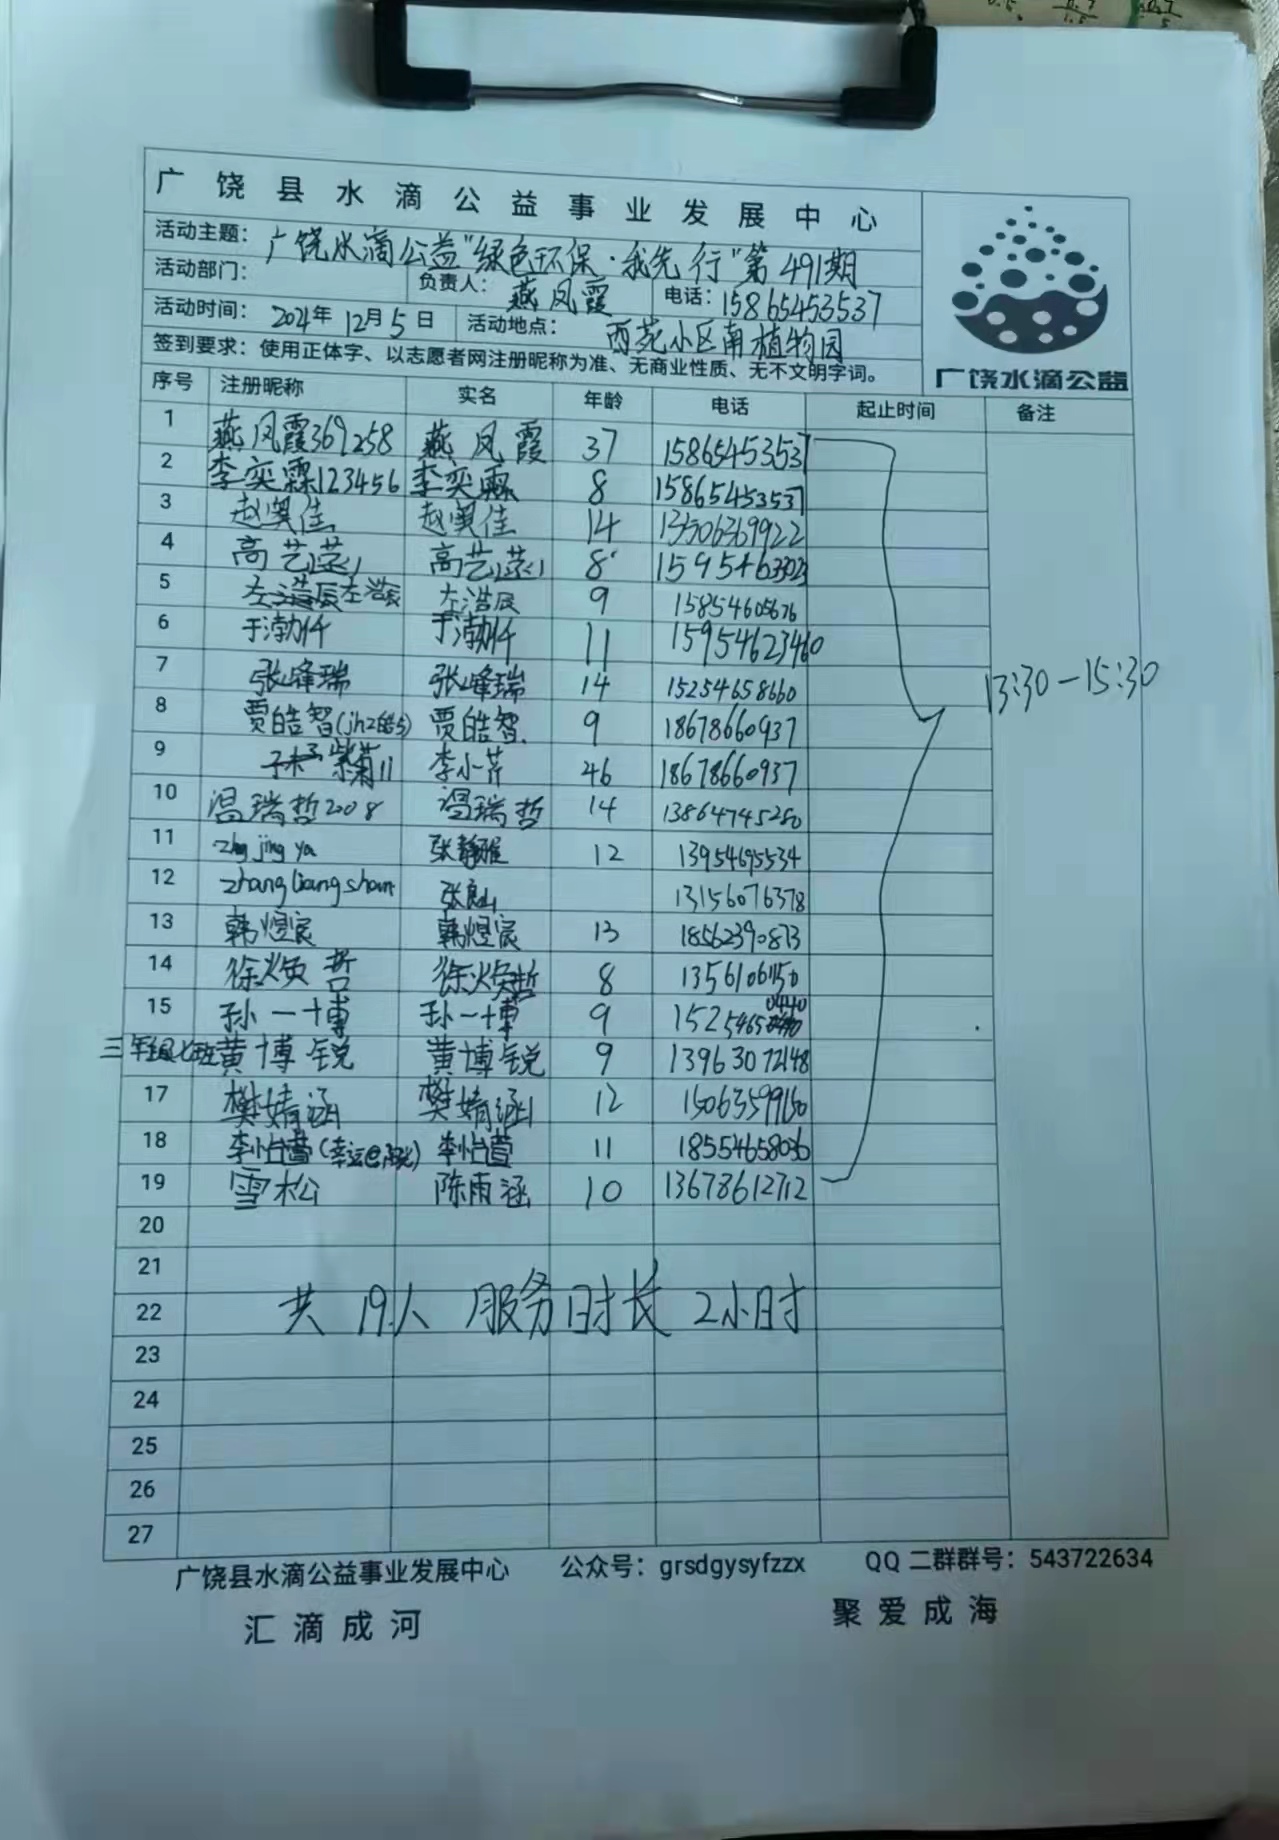 广饶县水滴公益事业发展中心
活动主题：广饶水滴公益"绿色环保·我先行"第491期
活动部门： 负责人：燕凤霞 电话：15865453537
活动时间：2024年12月5日 活动地点：西苑小区南植物园
签到要求：使用正体字、以志愿者网注册昵称为准、无商业性质、无不文明字词。
广饶水滴公益
序号 注册昵称 实名 年龄 电话 起止时间 备注
1 燕凤霞369258 燕凤霞 37 15865453537
2 李奕霖123456 李奕霖 8 15865453537
3 赵奥佳 赵奥佳 14 13506369922
4 高艺 高艺 8
5 左浩辰 左浩辰 9 15854605676
6 于渤仟 于渤仟 11 15954623460
7 张峰瑞 张峰瑞 14 15254658660
13:30—15:30
8 贾皓智 贾皓智 9 18678660937
9 紫菊11 李小芹 46 18678660937
10 温瑞哲2008 温瑞哲 14 13864745280
11 张静雅 12 13954695534
12 zhangliangshan 张良山 13156076378
13 韩煜宸 韩煜宸 13 18562390873
14 徐焕哲 徐焕哲 8 13561061150
15 孙一博 孙一博 9 15254650440
三年级七班 黄博锐 黄博锐 9 13963072148
17 樊婧涵 樊婧涵 12 15063599150
18 李怡萱 李怡萱 11 18554658036
19 雪松 陈雨涵 10 13678612712
20
21
22 共19人 服务时长2小时
23
24
25
26
27
广饶县水滴公益事业发展中心 公众号：grsdgysyfzzx QQ二群群号：543722634
汇滴成河 聚爱成海